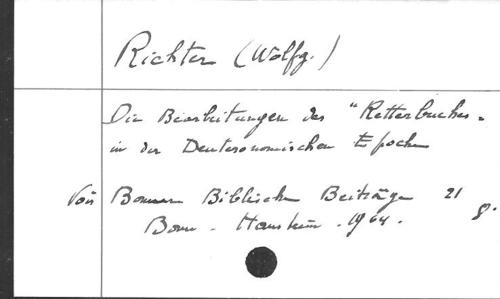 Richter (Wolfg.)
Die Bearbeitungen des "Retterbuches"
in der Deuteronomischen Epoche
Voir Bonner Biblische Beiträge 21
8°
Bonn - Hanstein - 1964.